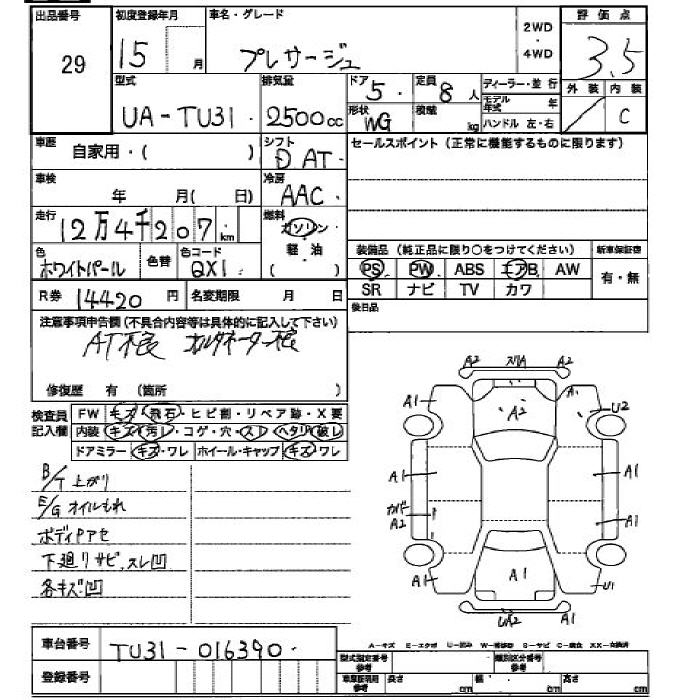 出品番号 初度登録年月 車名・グレード 2WD ・ 4WD 評価点
29 15 月 プレサージュ 3.5
型式 排気量 ドア 5 定員 8人 ディーラー・並行 外装 内装
UA-TU31 2500cc 形状 WG 積載 kg モデル年式 年 ハンドル 左・右 C
車歴 自家用・( ) シフト D AT セールスポイント (正常に機能するものに限ります)
車検 年 月( 日) 冷房 AAC
走行 12万4千207km 燃料 ガソリン・軽油 ( )
色 ホワイトパール 色替 色コード QX1 装備品 (純正品に限り○をつけてください) 新車保証書
PS PW ABS エアB AW 有・無
R券 14420円 名変期限 月 日 SR ナビ TV カワ
注意事項申告欄 (不具合内容等は具体的に記入して下さい) 後日品
AT不良 オルタネーター不良
修復歴 有 (箇所 )
検査員記入欄 FW キズ・飛石・ヒビ割・リペア跡・X要
内装 キズ・汚レ・コゲ・穴・スレ・ヘタリ・破レ
ドアミラー キズ・ワレ ホイール・キャップ キズ・ワレ
B/T 上がり
E/G オイルもれ
ボディPアセ
下廻りサビ、スレ凹
各キズ凹
A2 スリA A2
A1 A2 A U2
A1 A1
カバー A2 A1
A1 A1 U1
UA2 A1
車台番号 TU31-016390
A-キズ E-エクボ U-凹み W-補修跡 S-サビ C-腐食 XX-交換済
登録番号 型式指定番号参考 類別区分番号参考
車庫証明用参考 長さ cm 幅 cm 高さ cm